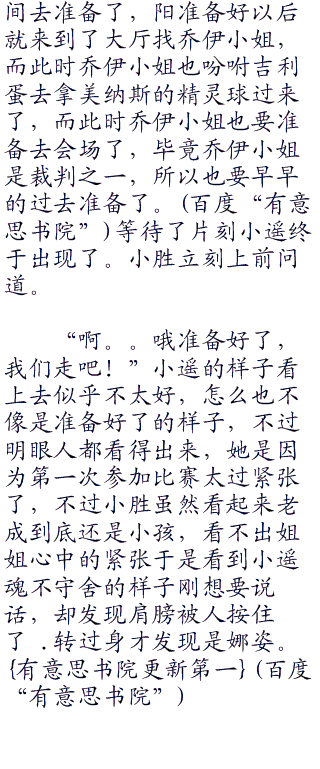 间去准备了，阳准备好以后
就来到了大厅找乔伊小姐，
而此时乔伊小姐也吩咐吉利
蛋去拿美纳斯的精灵球过来
了，而此时乔伊小姐也要准
备去会场了，毕竟乔伊小姐
是裁判之一，所以也要早早
的过去准备了。(百度“有意
思书院”)等待了片刻小遥终
于出现了。小胜立刻上前问
道。
“啊。。哦准备好了，
我们走吧！”小遥的样子看
上去似乎不太好，怎么也不
像是准备好了的样子，不过
明眼人都看得出来，她是因
为第一次参加比赛太过紧张
了，不过小胜虽然看起来老
成到底还是小孩，看不出姐
姐心中的紧张于是看到小遥
魂不守舍的样子刚想要说
话，却发现肩膀被人按住
了．转过身才发现是娜姿。
{有意思书院更新第一}(百度
“有意思书院”)